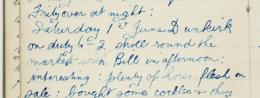 over at night;
Saturday 1st June Dunkirk
on duty 6-2 stroll round the
market with Bell in afternoon;
interesting; plenty of horse flesh on
sale; bought some cockles & they